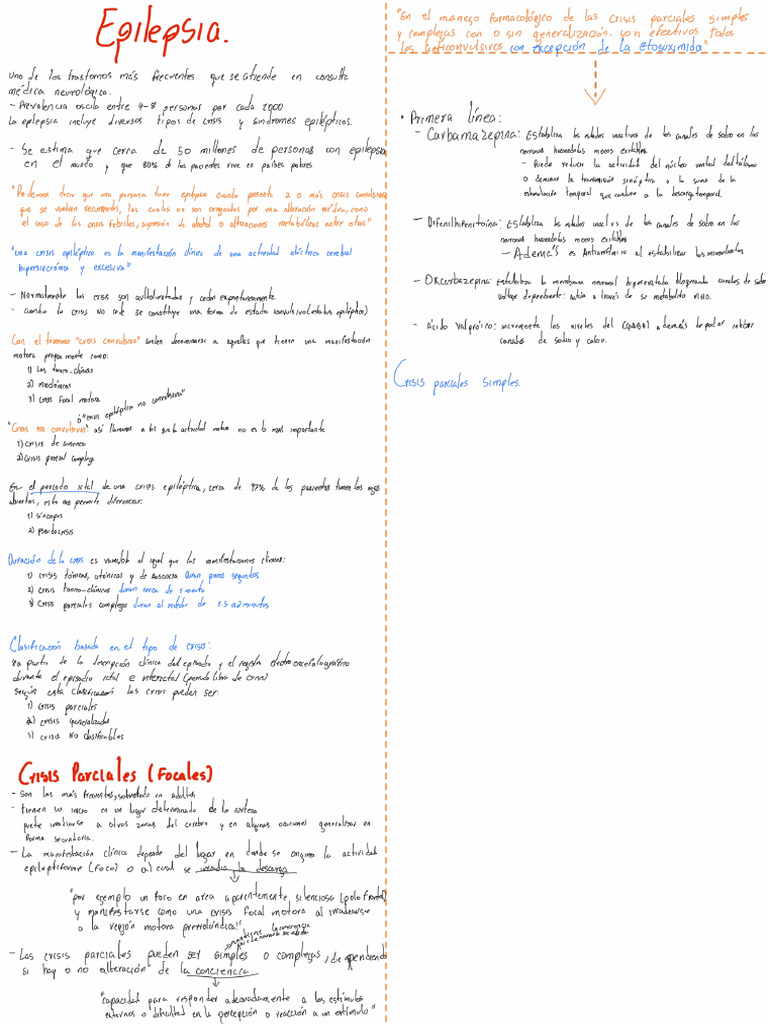 Epilepsia.
Uno de los trastornos más frecuentes que se atiende en consulta
médica neurológica.
- Prevalencia oscila entre 4-8 personas por cada 1000
La epilepsia incluye diversos tipos de crisis y síndromes epilépticos.
- Se estima que cerca de 50 millones de personas con epilepsia
en el mundo y que 80% de los pacientes vive en países pobres
"Podemos decir que una persona tiene epilepsia cuando presenta 2 o más crisis convulsivas
que se vuelven recurrentes, las cuales no son originadas por una alteración médica, como
el caso de las crisis febriles, supresión de alcohol o alteraciones metabólicas entre otras"
"una crisis epiléptica es la manifestación clínica de una actividad eléctrica cerebral
hipersincrónica y excesiva"
- Normalmente las crisis son autolimitadas y ceden espontáneamente.
- cuando la crisis no cede se constituye una forma de estado convulsivo (estatus epiléptico)
Con el término "crisis convulsiva" suelen denominarse a aquellas que tienen una manifestación
motora propiamente como:
1) Las tónico-clónicas
2) mioclónicas
3) crisis focal motora
ó "crisis epiléptica no convulsiva"
"Crisis no convulsivas" así llamamos a las que la actividad motora no es lo más importante
1) crisis de ausencia
2) Crisis parcial compleja
En el periodo ictal de una crisis epiléptica, cerca de 97% de los pacientes tienen los ojos
abiertos, esto nos permite diferenciar:
1) síncopes
2) pseudocrisis
Duración de la crisis es variable al igual que las manifestaciones clínicas:
1) crisis tónicas, atónicas y de ausencia duran pocos segundos
2) crisis tónico-clónicas duran cerca de 1 minuto
3) Crisis parciales complejas duran al rededor de 1.5 a 2 minutos
Clasificación basada en el tipo de crisis:
a partir de la descripción clínica del episodio y el registro electroencefalográfico
durante el episodio ictal e interictal (periodo libre de crisis)
según esta clasificación las crisis pueden ser:
1) crisis parciales
2) crisis generalizadas
3) crisis NO clasificables
Crisis Parciales (Focales)
- Son las más frecuentes, sobretodo en adultos
- tienen su inicio en un lugar determinado de la corteza
puede irradiarse a otras zonas del cerebro y en algunas ocasiones generalizarse en
forma secundaria.
- La manifestación clínica depende del lugar en donde se origina la actividad
epileptiforme (foco) o al cual se irradia la descarga
"por ejemplo un foco en area aparentemente silenciosa (polo frontal)
y manifestarse como una crisis focal motora al irradiarse
a la región motora prerrolándica"
mantiene la conciencia
- Las crisis parciales pueden ser simples o complejas, dependiendo
si hay o no alteración de la conciencia
"capacidad para responder adecuadamente a los estímulos
externos o dificultad en la percepción o reacción a un estímulo"
"En el manejo farmacológico de las crisis parciales simples
y complejas con o sin generalización son efectivos todos
los anticonvulsivos con excepción de la etosuximida"
• Primera línea:
- Carbamazepina: Estabiliza los estados inactivos de los canales de sodio en las
neuronas haciéndolas menos exitables
- Puede reducir la actividad del núcleo ventral del tálamo
o disminuir la transmisión sináptica o la suma de la
estimulación temporal que conduce a la descarga temporal.
- Difenilhidantoina: Estabiliza los estados inactivos de los canales de sodio en las
neuronas haciéndolas menos exitables
- Además es Antiarrítmico al estabilizar los miocardiocitos
- Oxcarbazepina: estabiliza la membrana neuronal hiperexcitada bloqueando canales de sodio
voltaje dependiente: actúa a través de su metabolito MHD.
- Ácido valpróico: incrementa los niveles del (GABA) además de poder inhibir
canales de sodio y calcio.
Crisis parciales simples.